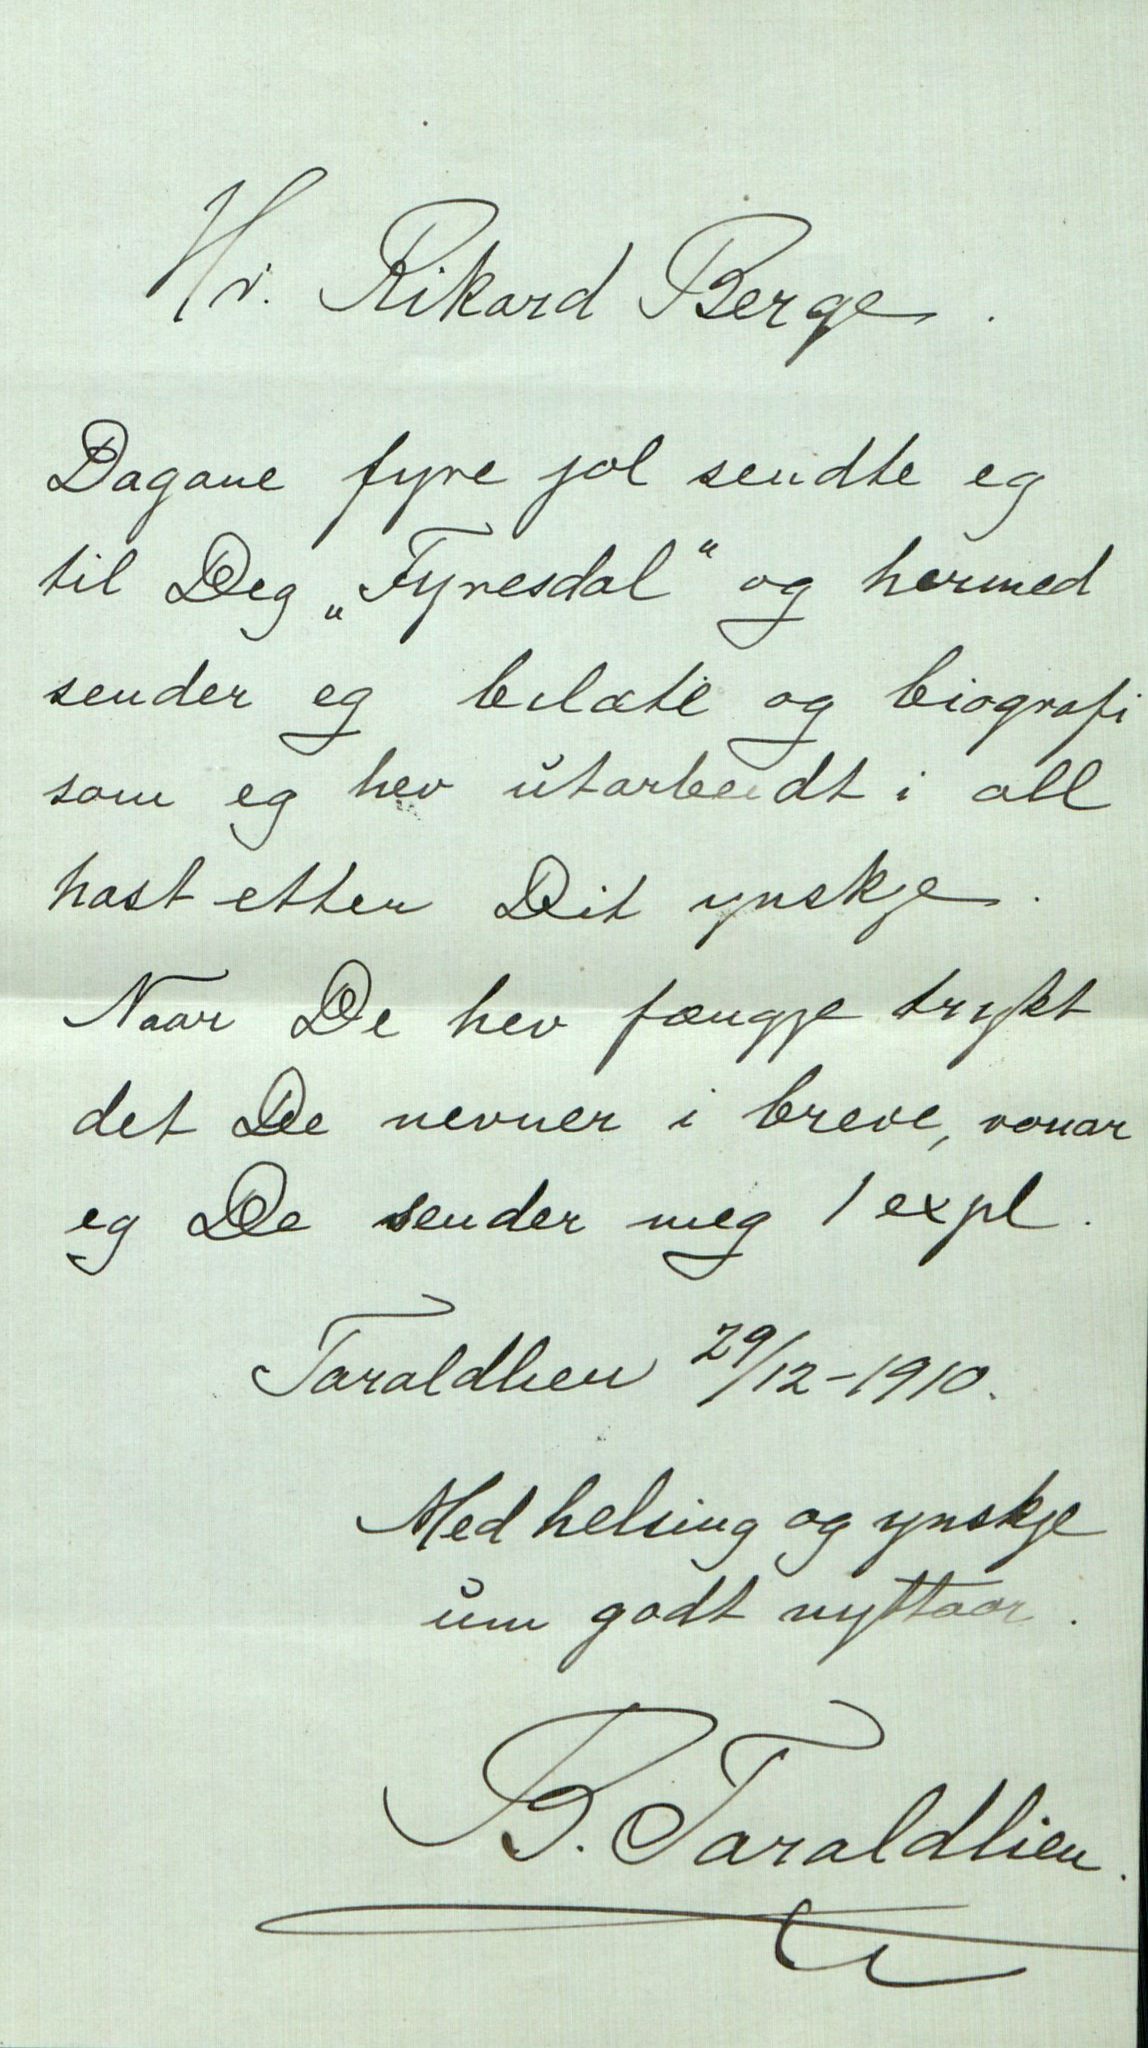 Hr. Rikard Berge.
Dagane fyre jol sendte eg
til Deg „Fyresdal“ og hermed
sender eg bilæte og biografi
som eg hev utarbeidt i all
hast etter Dit ynskje.
Naar De hev fængje trykt
det De nevner i breve, vonar
eg De sender meg 1 expl.
Taraldlien 29/12-1910.
Med helsing og ynskje
um godt nyttaar.
B. Taraldlien.